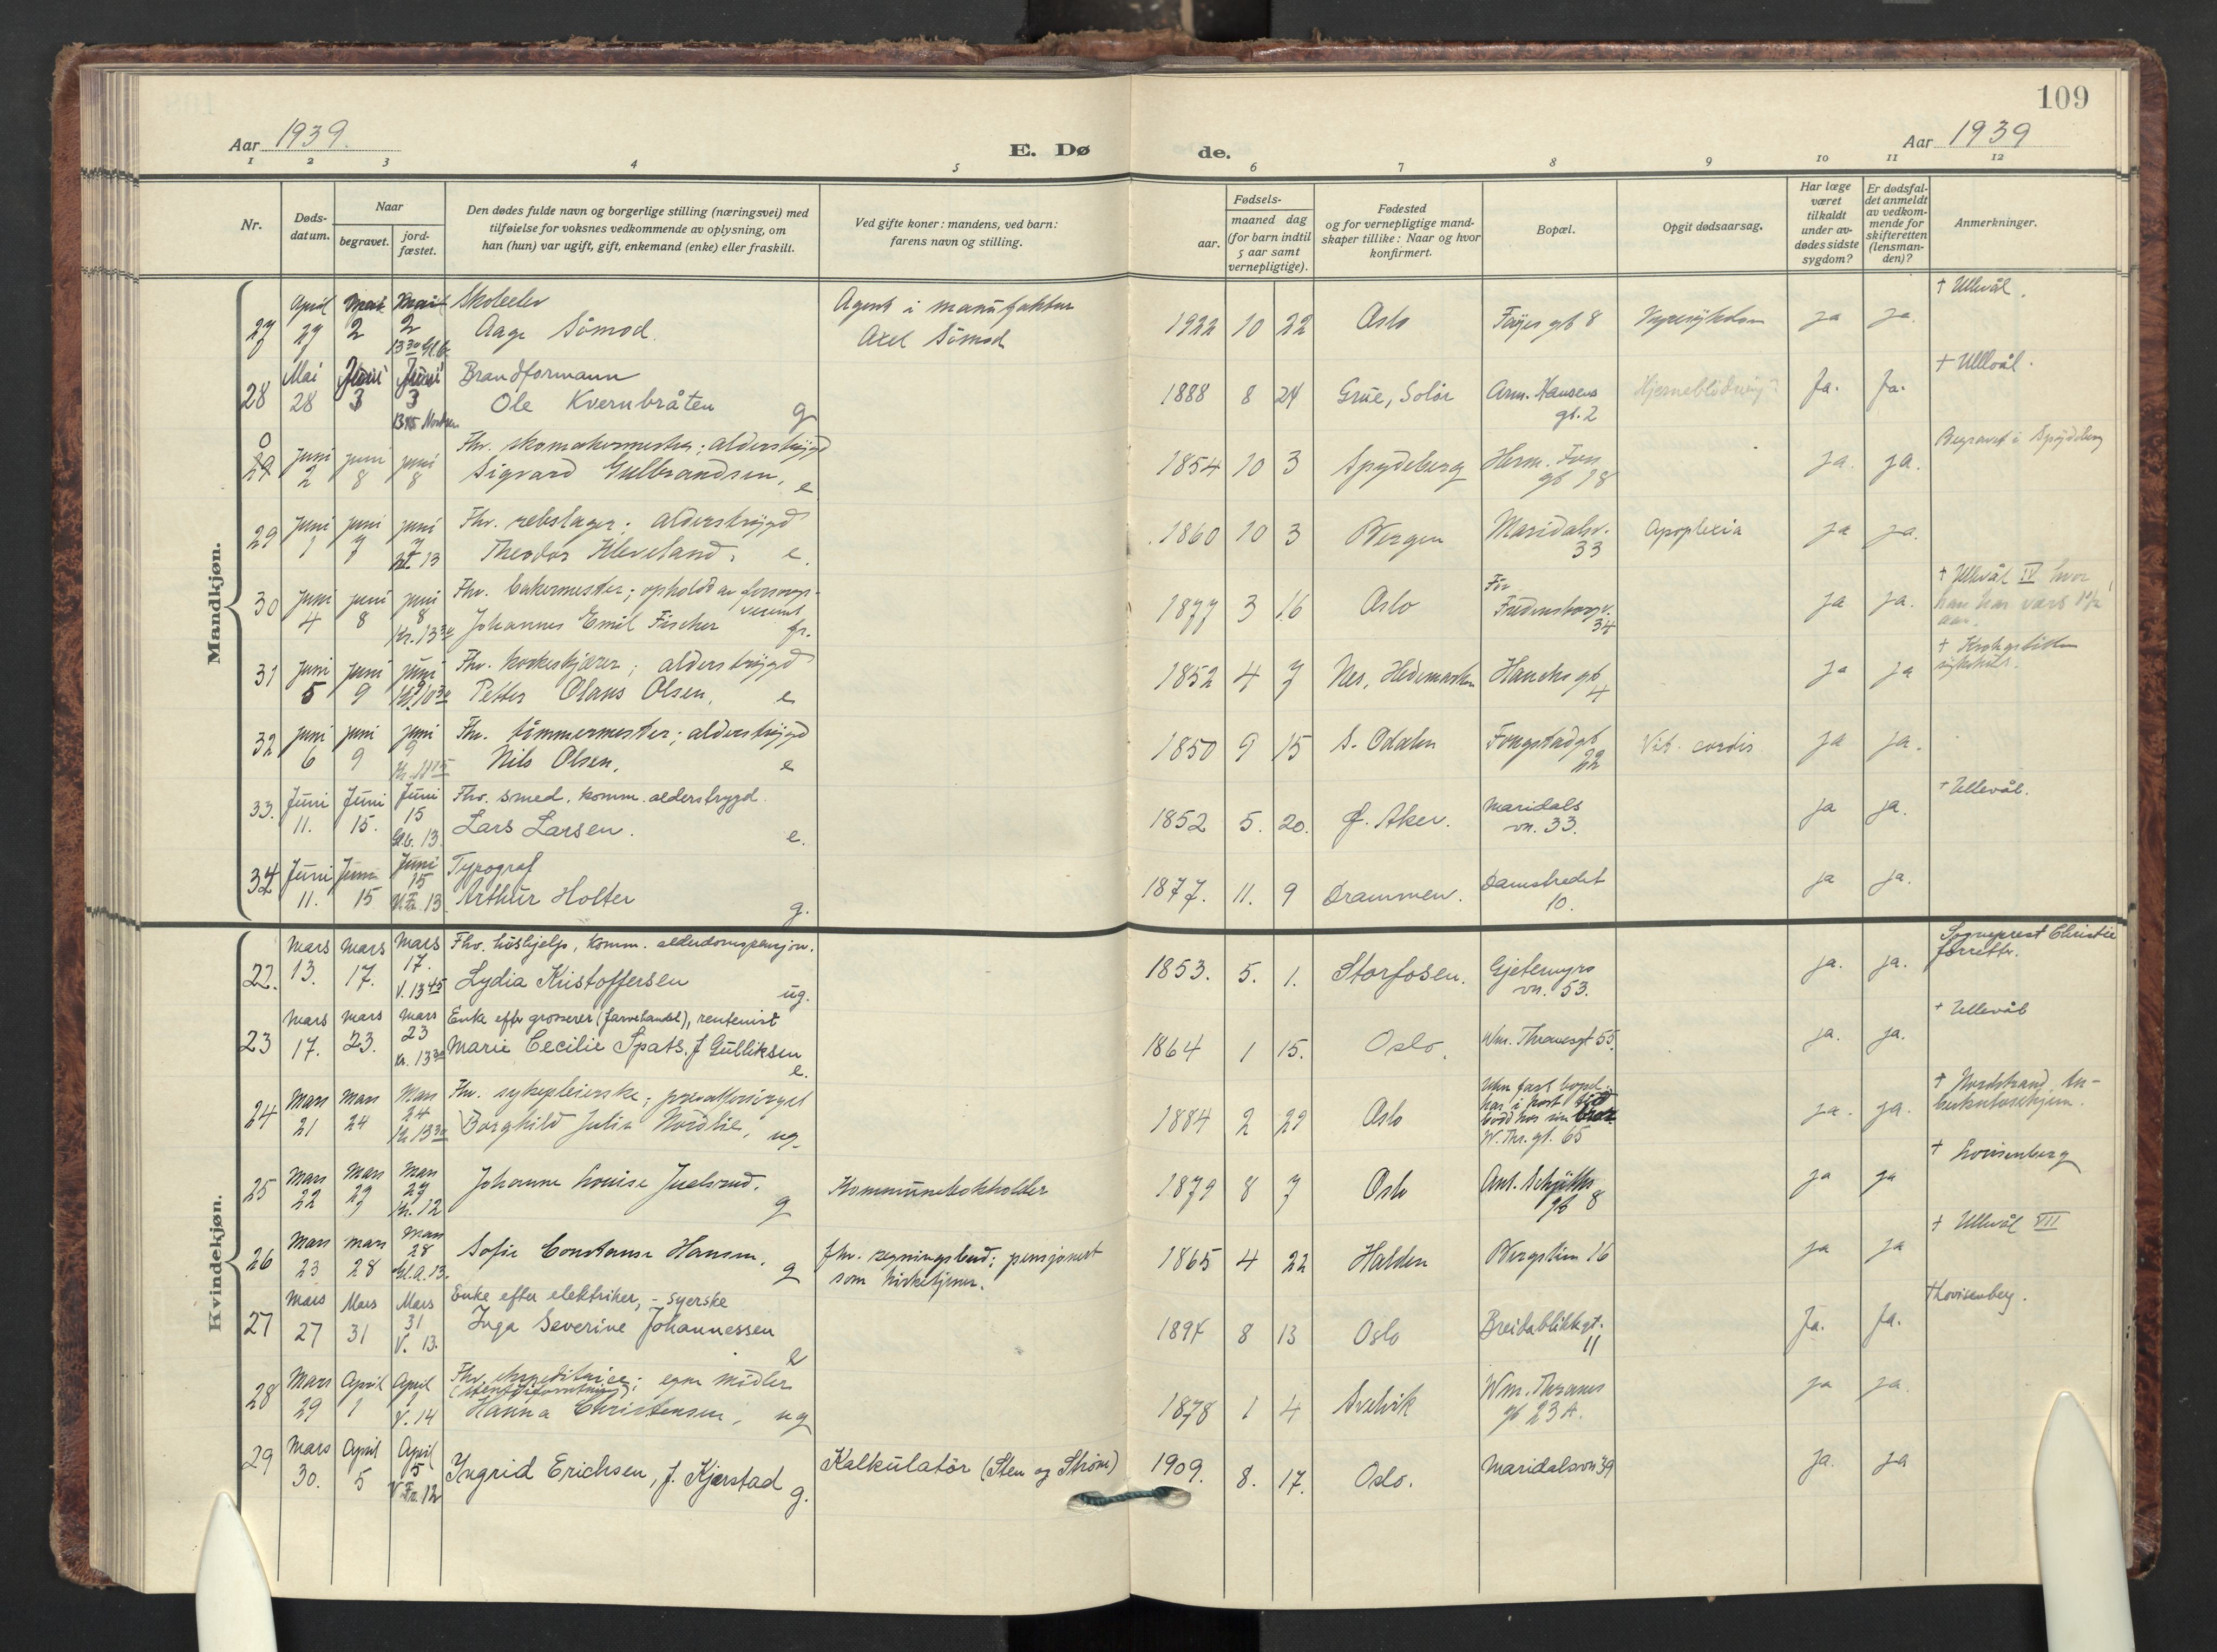 109
Aar 1939.
E. Dø
de.
Aar 1939
1 2 3 4 5 6 7 8 9 10 11 12
Nr.
Døds-
datum.
Naar
begravet.
jord-
fæstet.
Den dødes fulde navn og borgerlige stilling (næringsvei) med
tilføielse for voksnes vedkommende av oplysning, om
han (hun) var ugift, gift, enkemand (enke) eller fraskilt.
Ved gifte koner: mandens, ved barn:
farens navn og stilling.
Fødsels-
aar.
maaned dag
(for barn indtil
5 aar samt
vernepligtige).
Fødested
og for vernepligtige mand-
skaper tillike: Naar og hvor
konfirmert.
Bopæl.
Opgit dødsaarsag.
Har læge
været
tilkaldt
under av-
dødes sidste
sygdom?
Er dødsfal-
det anmeldt
av vedkom-
mende for
skifteretten
(lensman-
den)?
Anmerkninger.
Mandkjøn.
April Mai Mai Skoleelev Agent i manufaktur † Ullevål.
27 27 2 2 Aage Sømod. Axel Sømod 1922 10 22 Oslo Fayes gt 8 Nyresykdom ja ja.
13 30 Gl. k.
Mai Juni Juni Brandformann † Ullevål.
28 28 3 3 Ole Kvernbråten g 1888 8 24 Grue, Solør Arm. Hansens Hjerneblødning? Ja. Ja.
13 45 gt. 2
Juni juni juni Fhv. skomakermester; alderstrygd Begravet i Spydeberg
29 2 8 8 Sigvard Gulbrandsen, e 1854 10 3 Spydeberg Herm. Foss ja. ja.
gt 18
Juni juni juni Fhv. rebslager; alderstrygd
29 1 7 7 Theodor Kleveland, e. 1860 10 3 Bergen Maridalsv. Apoplexia ja ja.
13 33
Juni juni juni Fhv. bakermester; ophold av forsorgs- † Ullevål IV hvor
30 4 8 8 vesenet 1877 3 16 Oslo Før Fredensborgv. ja ja. han har vært 1½
Kr. 13 30 Johannes Emil Fischer fr. 34 aar.
Juni Juni juni Fhv. korkeskjærer; alderstrygd † Krohgstøtten
31 5 9 9 1852 4 7 Nes, Hedemarken Hauchs gt ja ja sykehus.
10 30 Petter Olaus Olsen, e 4
juni juni juni Fhv. tømmermester; alderstrygd
32 6 9 9 Nils Olsen, e 1850 9 15 S. Odalen Fougstadgt Vit. cordis ja ja.
22
Juni Juni Juni Fhv. smed. komm. alderstrygd. † Ullevål.
33. 11. 15. 15 Lars Larsen. e. 1852 5. 20. Ø. Aker. Maridals ja ja.
Gl. 13. vn. 33.
Juni Juni Juni Typograf
34 11. 15 15 Arthur Holter g. 1877. 11. 9 Drammen. Damstredet ja ja.
13 10.
Kvindekjøn.
Mars Mars Mars Fhv. hushjelp, komm. alderdomspensjon. Sogneprest Christie
22. 13. 17. 17. Lydia Kristoffersen ug. 1853. 5. 1. Storfosen. Gjetemyrs ja. ja. forrettr.
V. 13 45 vn. 53.
Mars Mars Mars Enke efter grosserer (farvehandel), rentenist † Ullevål
23 17. 23. 23 Marie Cecilie Spats. f Gulliksen 1864 1 15. Oslo. Wm. Thranesgt 55. ja. ja.
Kr. 13 30 e.
Mars Mars Mars Fhv. sykepleierske; Uten fast bopel. † Nordstrand tu-
24 21 24 24 Borghild Julie Nordlie, ug. 1884 2 29 Oslo har i kort tid ja. ja. berkulosehjem.
Kr 13 30 bodd hos sin
W. Thr. gt. 65
Mars Mars Mars † Lovisenberg
25 22 27 27 Johanne Louise Juelsrud. g Kommunebokholder 1879 8 7 Oslo Ant. Schjøths ja ja
Kr. 12 gt 8
Mars mars Mars † Ullevål VII
26 23 28 28 Sofie Constanse Hansen, g fhv. regningsbud; pensjonert 1865 4 22 Halden Bergstien 16 ja ja
Gl. A. 13. som kirketjener.
Mars Mars Mars Enke efter elektriker, – syerske † Lovisenberg.
27 27 31 31 Inga Severine Johannessen e 1894 8 13 Oslo Breidablikkgt. Ja. Ja.
V. 13. 11
Mars April April Fhv. ekspeditrice; egne midler
28 29 1 1 Hanna Christensen, ug 1878 1 4 Svelvik Wm. Thranes ja ja.
V. 14 gt 23 A.
Mars April April
29 30. 5 5 Ingrid Erichsen, f. Kjærstad g. Kalkulatør (Sten og Strøm) 1909. 8. 17. Oslo. Maridalsvn 39 ja. ja
V. Fr. 12